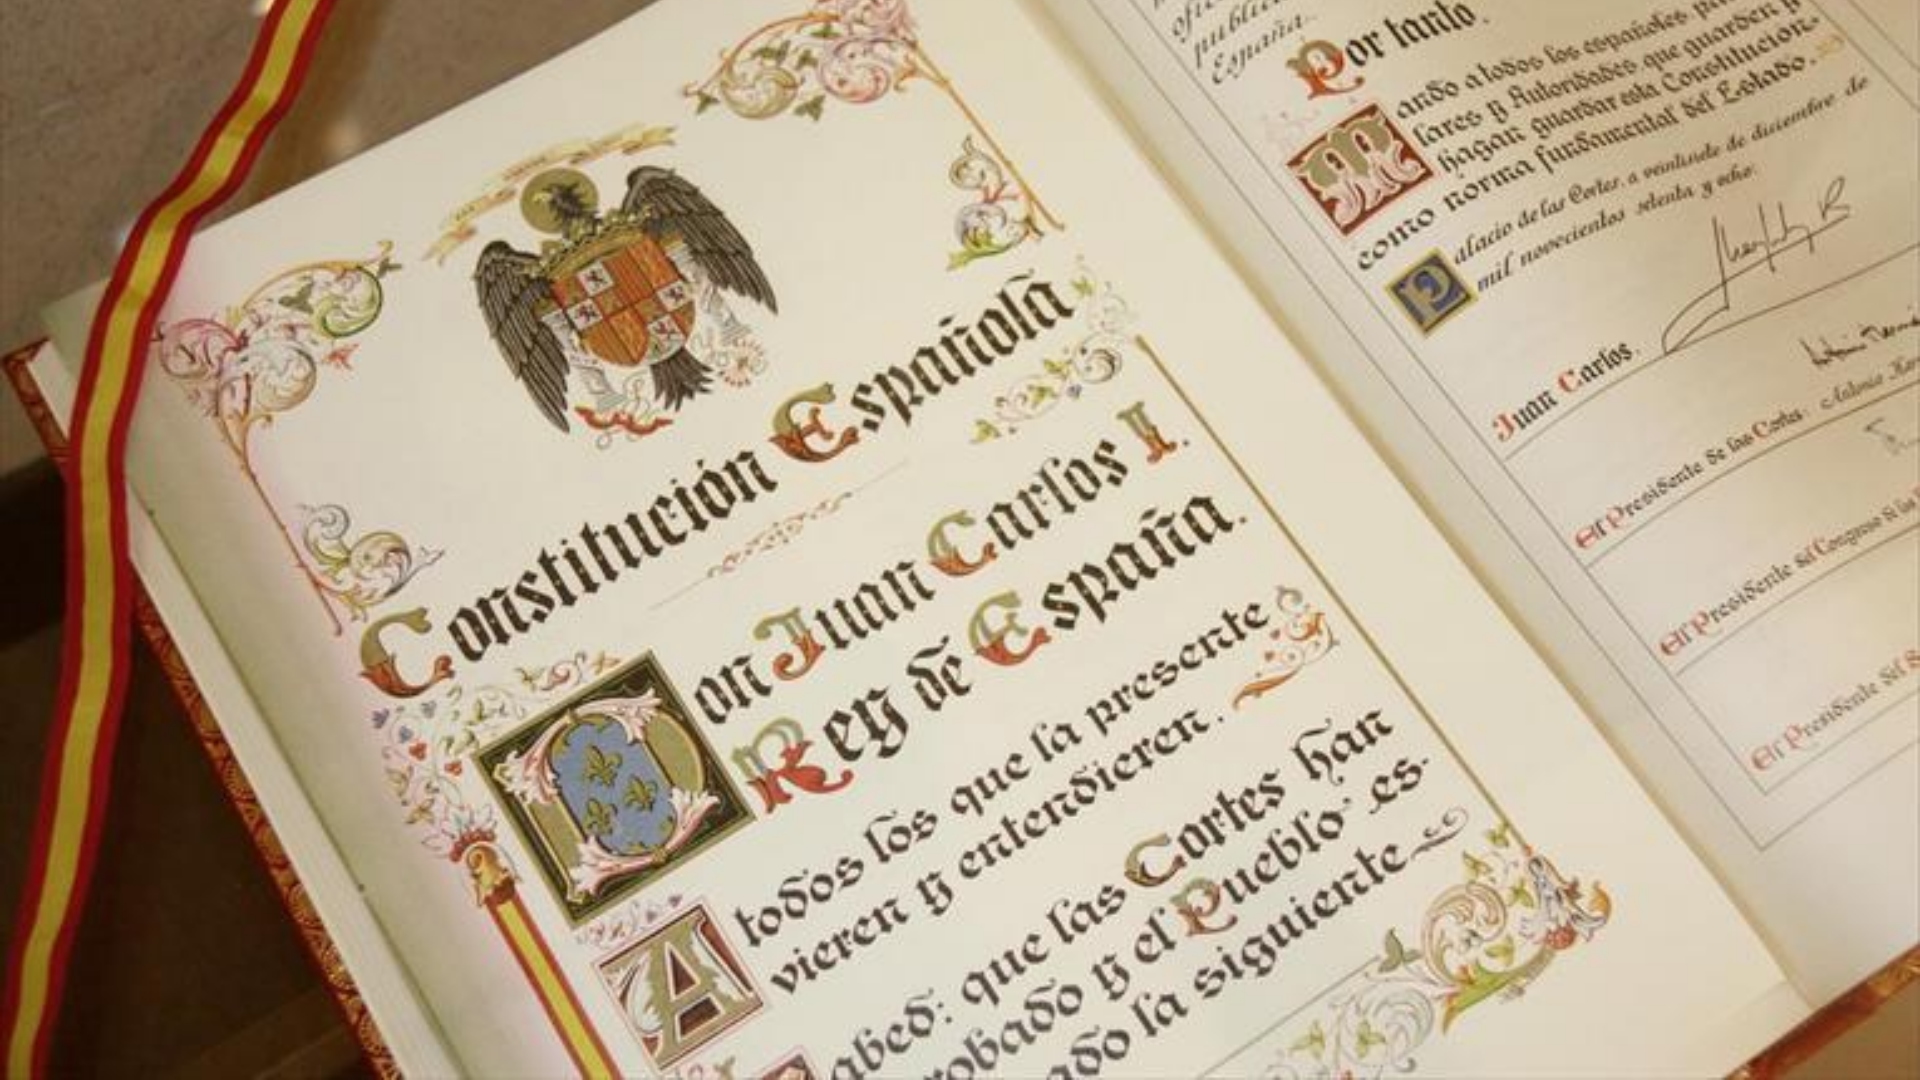 Constitución Española
Don Juan Carlos I.
Rey de España.
A todos los que la presente
vieren y entendieren.
abed: que las Cortes han
robado y el Pueblo es-
ado la siguiente
España.
Por tanto.
Mando a todos los españoles
lares y Autoridades que guarden y
hagan guardar esta Constitución
como norma fundamental del Estado.
Palacio de las Cortes, a veintisiete de diciembre de
mil novecientos setenta y ocho.
Juan Carlos.
El Presidente de las Cortes: Antonio
El Presidente del Congreso de los
El Presidente del